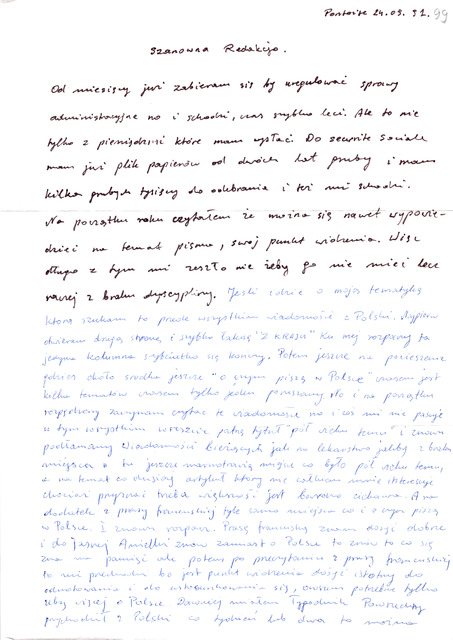 Pontoise 24.09.91. 99
Szanowna Redakcjo.
Od miesięcy już zabieram się by uregulować sprawy
administracyjne no i schodzi, czas szybko leci. Ale to nie
tylko z pieniędzmi które mam wysłać. Do securite sociale
mam już plik papierów od dwóch lat i mam
kilka tysięcy do odebrania i też mi schodzi.
Na początku roku czytałem że można się nawet wypowie-
dzieć na temat pisma, swój punkt widzenia. Więc
długo z tym mi zeszło nie żeby go nie mieć lecz
raczej z braku dyscypliny. Jeśli idzie o moją tematykę
którą szukam to przede wszystkim wiadomości z Polski. Najpierw
otwieram drugą stronę i szybko "Z KRAJU" Ku mej rozpaczy ta
jedyna kolumna szybciutko się kończy. Potem jeszcze na pocieszenie
gdzieś około środka jeszcze "o czym piszą w Polsce" owszem jest
kilka tematów owszem tylko jeden poruszany No i na początku
zaczynam czytać te wiadomości no i coś mi nie pasuje
w tym wszystkim wreszcie patrzę tytuł "pół wieku temu" i znowu
podłamany Wiadomości bieżących jak na lekarstwo jakby z braku
miejsca a tu jeszcze marnotrawią miejsce co było pół wieku temu,
a na temat co drugi artykuł który nie mnie interesuje
chociaż przyznać trzeba większość jest bardzo ciekawa. A na
dodatek z prasy francuskiej tyle samo miejsca co i o czym piszą
w Polsce. I znowu rozpacz. Prasę francuską znam dosyć dobrze
i do jasnej Anielki znów zamiast o Polsce to znów to co się
zna na pamięć ale potem po przeczytaniu z prasy francuskiej
to mi przechodzi bo jest punkt widzenia dosyć istotny do
odnotowania i do ustosunkowania się, owszem potrzebne tylko
żeby więcej o Polsce Dawniej miałem Tygodnik Powszechny
przychodził z Polski co tydzień lub dwa to można